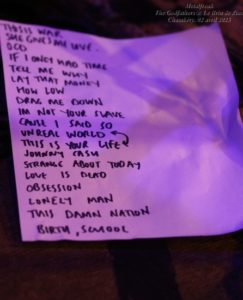 Metalfreak
The Godfathers @ Le Brin de Zinc
Chambéry, 02 avril 2025
THIS WAR
SHE GIVES ME LOVE
OCD
IF I ONLY HAD TIME
TELL ME WHY
LAY THAT MONEY
HOW LOW
DRAG ME DOWN
IM NOT YOUR SLAVE
CAUSE I SAID SO
UNREAL WORLD
THIS IS YOUR LIFE
JOHNNY CASH
STRANGE ABOUT TODAY
LOVE IS DEAD
OBSESSION
LONELY MAN
THIS DAMN NATION
BIRTH, SCHOOL